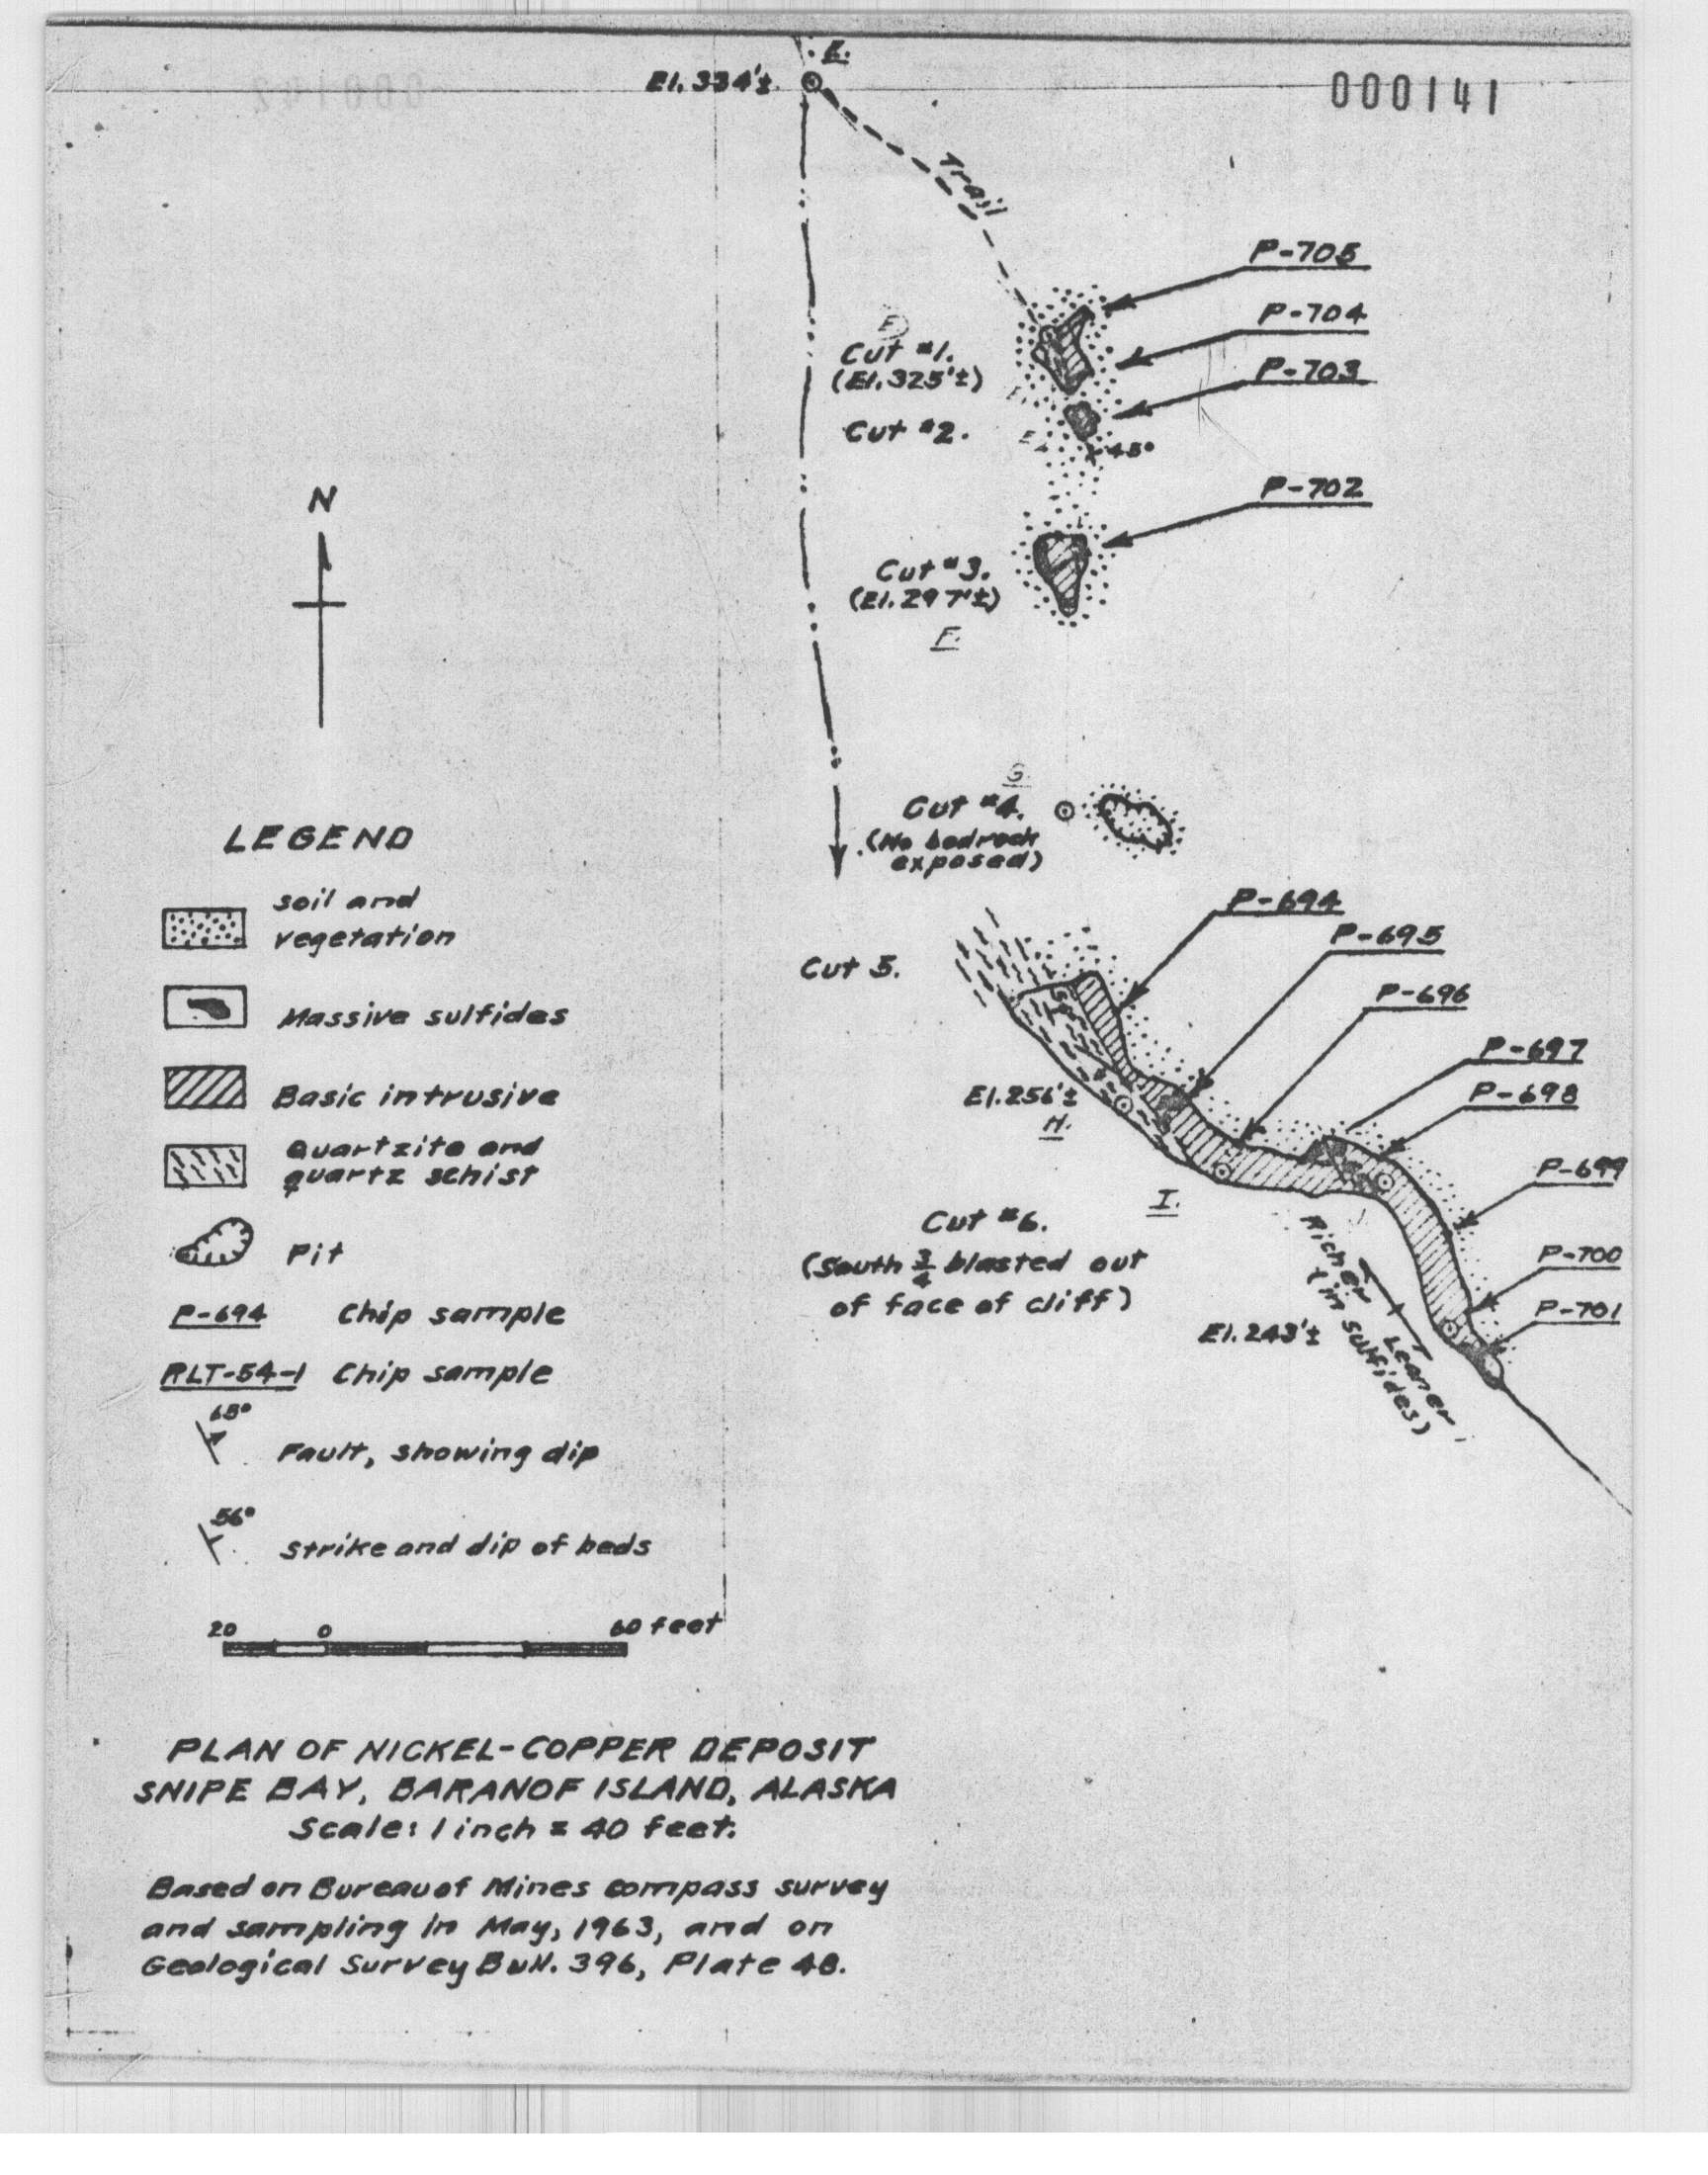 E.
El. 334'±
000141
Trail
P-705
P-704
Cut #1.
(El. 325'±)
P-703
Cut #2.
45°
N
P-702
Cut #3.
(El. 297'±)
F.
G.
Cut #4.
(No bedrock
exposed)
LEGEND
soil and
vegetation
Massive sulfides
Basic intrusive
Quartzite and
quartz schist
Pit
P-694 Chip sample
RLT-54-1 Chip sample
65°
Fault, showing dip
56°
Strike and dip of beds
20 0 60 feet
P-694
P-695
Cut 5.
P-696
P-697
El. 256'±
P-698
H.
P-699
I.
Cut #6.
(South 3/4 blasted out
of face of cliff)
P-700
P-701
El. 243'±
Richer
Leaner
(in sulfides)
PLAN OF NICKEL-COPPER DEPOSIT
SNIPE BAY, BARANOF ISLAND, ALASKA
Scale: 1 inch = 40 feet.
Based on Bureau of Mines compass survey
and sampling in May, 1963, and on
Geological Survey Bull. 396, Plate 48.